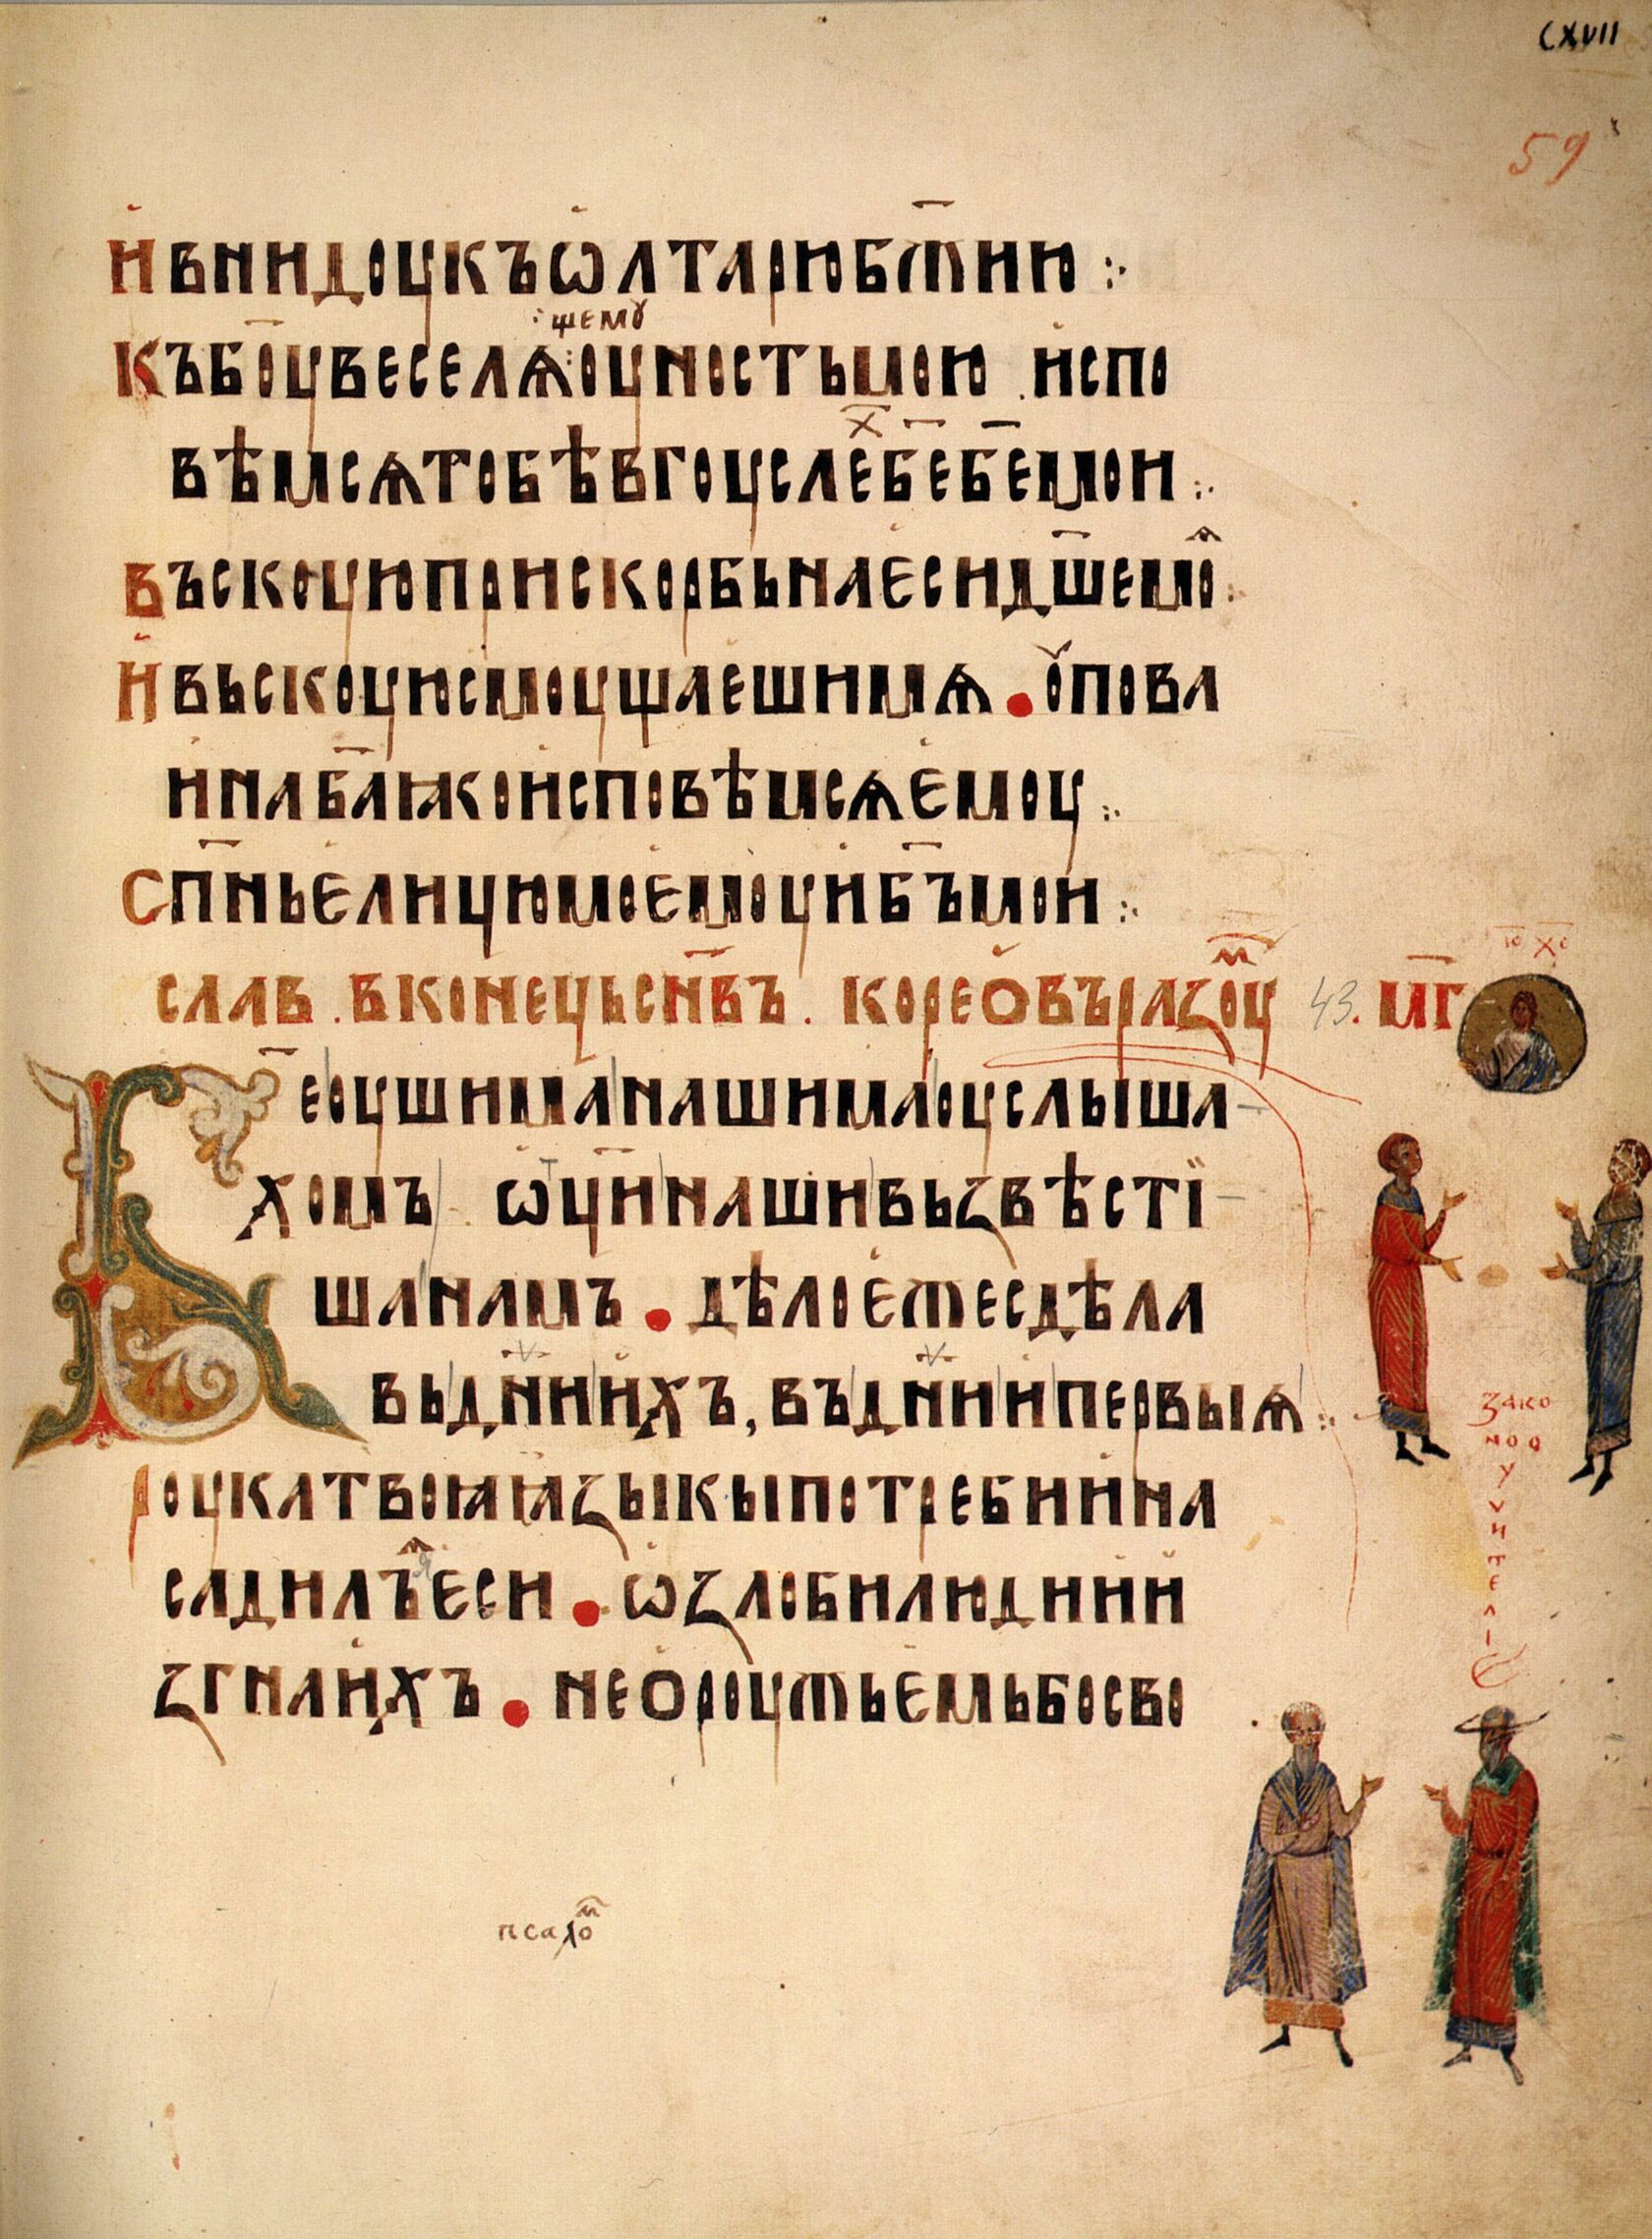 CXVII
59
И҆внидоукъѡлтарюбж҃ию :·
:·щемꙋ
Къбо҃увеселѧ:оуностьмою .и҆спо
вѣмсѧтобѣвгоуслехб҃еб҃емои :·
Въскоуюприскорбьнаѥсидш҃емоꙗ :·
И҆въскоуюсмоущаѥшимѧ • о҆пова
и҆наб҃аꙗкои҆сповѣмсѧѥмоу :·
Сп҃ньѥлицюмоѥмоуи҆б҃ъмои :·
слав . вконецьсн҃въ . корео҆въразоум 43. м҃г
і҃с х҃с
Б҃еоушиманашимаоуслыша-
хомъ . ѿц҃инашивъзвѣстї-
шанамъ • дѣлоѥжесдѣла
въдн҃ии҆хъ, въдн҃ии҆первыѧ :·
роукатвоꙗꙗзыкыпотребии҆на
садилъꙗѥси • ѡзлобилюдии҆и
згнаи҆хъ • нео҆роужьѥмьбосво
зако
ноо
у
ч
и
т
е
л
і
е
псалом